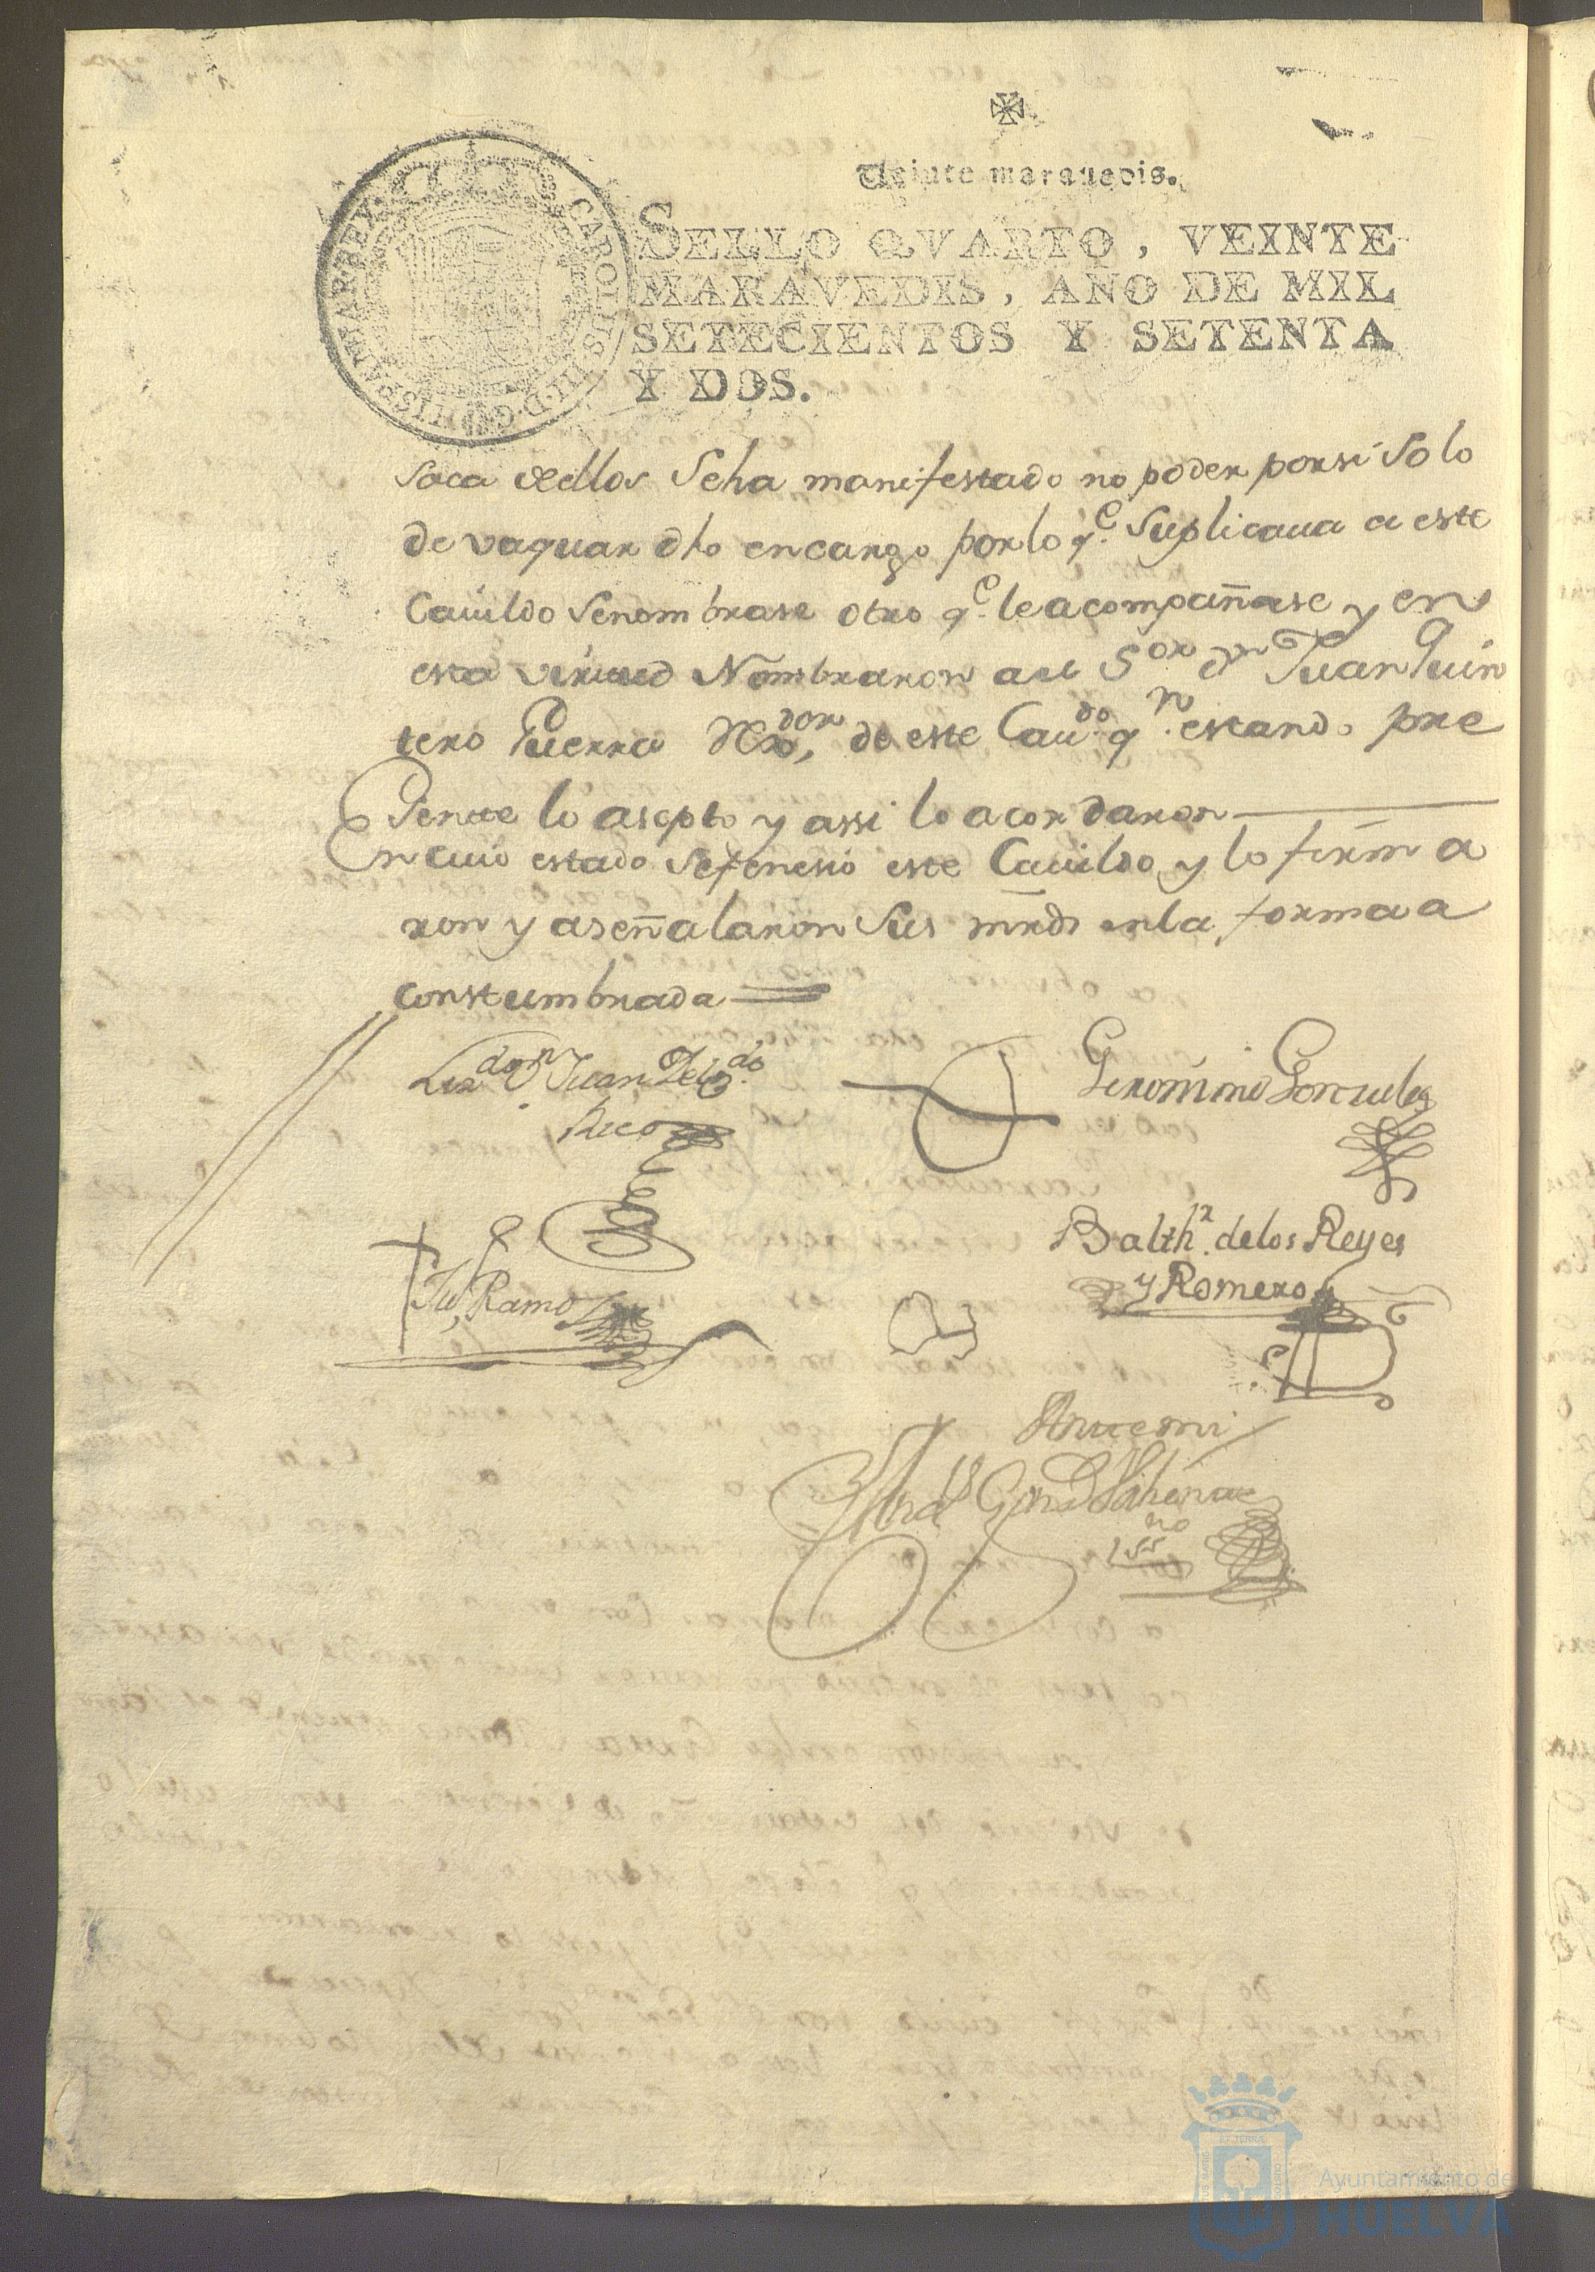 Veinte marauedis.
SELLO QVARTO, VEINTE
MARAVEDIS, AÑO DE MIL
SETECIENTOS Y SETENTA
Y DOS.
CAROLUS III D G HISP ET IND REX
saca dellos Seha manifestado no poder porsi Solo
de vaquar dho encargo porlo q.e Suplicaua a este
Cauildo Senombrase otro q.e leacompañase y en
esta virtud Nombraron a el S.or dn Juan Quin
tero Guerra Rexdor, de este Caudo. q.n estando pre
sente lo asepto y assi lo acordaron
En cuio estado Sefenesio este Cauildo y lo firma
ron y aseñalaron Sus mrds enla forma a
constumbrada
Lizdo Dn Juan Delgdo.
Rico
Geronimo Gonzales
Ju, Ramos
Balthr. delos Reyes
y Romero
Antemi
Ayuntamiento de
HUELVA